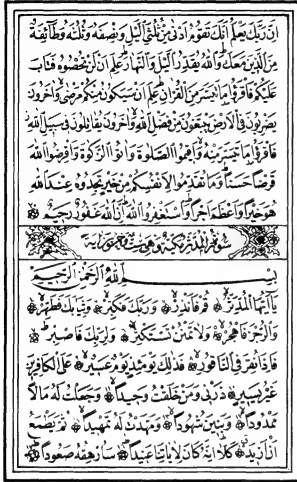 ان ربك يعلم انك تقوم ادنى من ثلثي الليل ونصفه وثلثه وطائفة
من الذين معك والله يقدر الليل والنهار علم ان لن تحصوه فتاب
عليكم فاقرؤا ما تيسر من القران علم ان سيكون منكم مرضى واخرون
يضربون في الارض يبتغون من فضل الله واخرون يقاتلون في سبيل الله
فاقرؤا ما تيسر منه واقيموا الصلوة واتوا الزكوة واقرضوا الله
قرضا حسنا وما تقدموا لانفسكم من خير تجدوه عند الله
هو خيرا واعظم اجرا واستغفروا الله ان الله غفور رحيم
سورة المدثر مكية وهي ست وخمسون اية
بسم الله الرحمن الرحيم
ياايها المدثر قم فانذر وربك فكبر وثيابك فطهر
والرجز فاهجر ولا تمنن تستكثر ولربك فاصبر
فاذا نقر في الناقور فذلك يومئذ يوم عسير على الكافرين
غير يسير ذرني ومن خلقت وحيدا وجعلت له مالا
ممدودا وبنين شهودا ومهدت له تمهيدا ثم يطمع
ان ازيد كلا انه كان لاياتنا عنيدا سارهقه صعودا